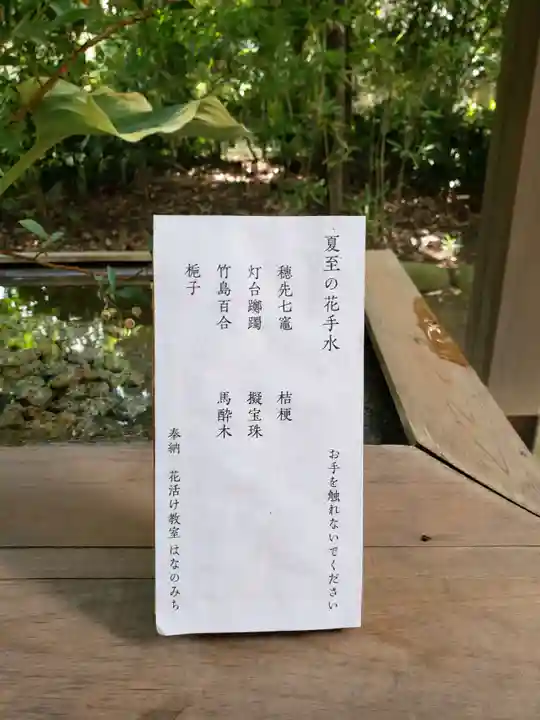 夏至の花手水
お手を触れないでください
穂先七竈 桔梗
灯台躑躅 擬宝珠
竹島百合 馬酔木
梔子
奉納 花活け教室 はなのみち